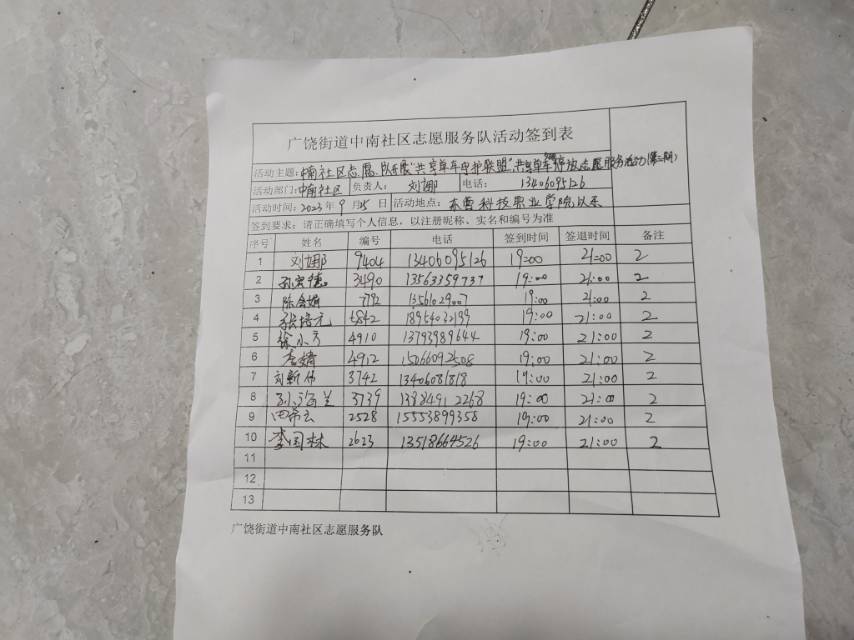 广饶街道中南社区志愿服务队活动签到表
活动主题: 中南社区志愿 队开展"共享单车守护联盟" 共享单车 停放志愿服务活动(第二期)
活动部门: 中南社区 负责人: 刘娜 电话: 13406095126
活动时间: 2023年9月15日 活动地点: 东营科技职业学院以东
签到要求: 请正确填写个人信息,以注册昵称、实名和编号为准
序号 姓名 编号 电话 签到时间 签退时间 备注
1 刘娜 9404 13406095126 19:00 21:00 2
2 孙宏德 3490 13563359737 19:00 21:00 2
3 陈会娟 7792 13561029007 19:00 21:00 2
4 张培元 18954032199 19:00 21:00 2
5 徐小方 4910 13793989644 19:00 21:00 2
6 李婧 4912 15066092508 19:00 21:00 2
7 刘新伟 3742 13406081818 19:00 21:00 2
8 孙海兰 3739 13984912268 19:00 21:00 2
9 田希云 2528 15553899358 19:00 21:00 2
10 李国林 2623 13518664526 19:00 21:00 2
11
12
13
广饶街道中南社区志愿服务队